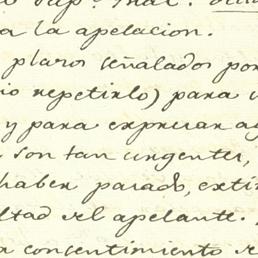 a la apelacion.
plazos señalados por
repetirlo) para
y para expresar
son tan urgentes,
haber pasado,
el apelante.
consentimiento